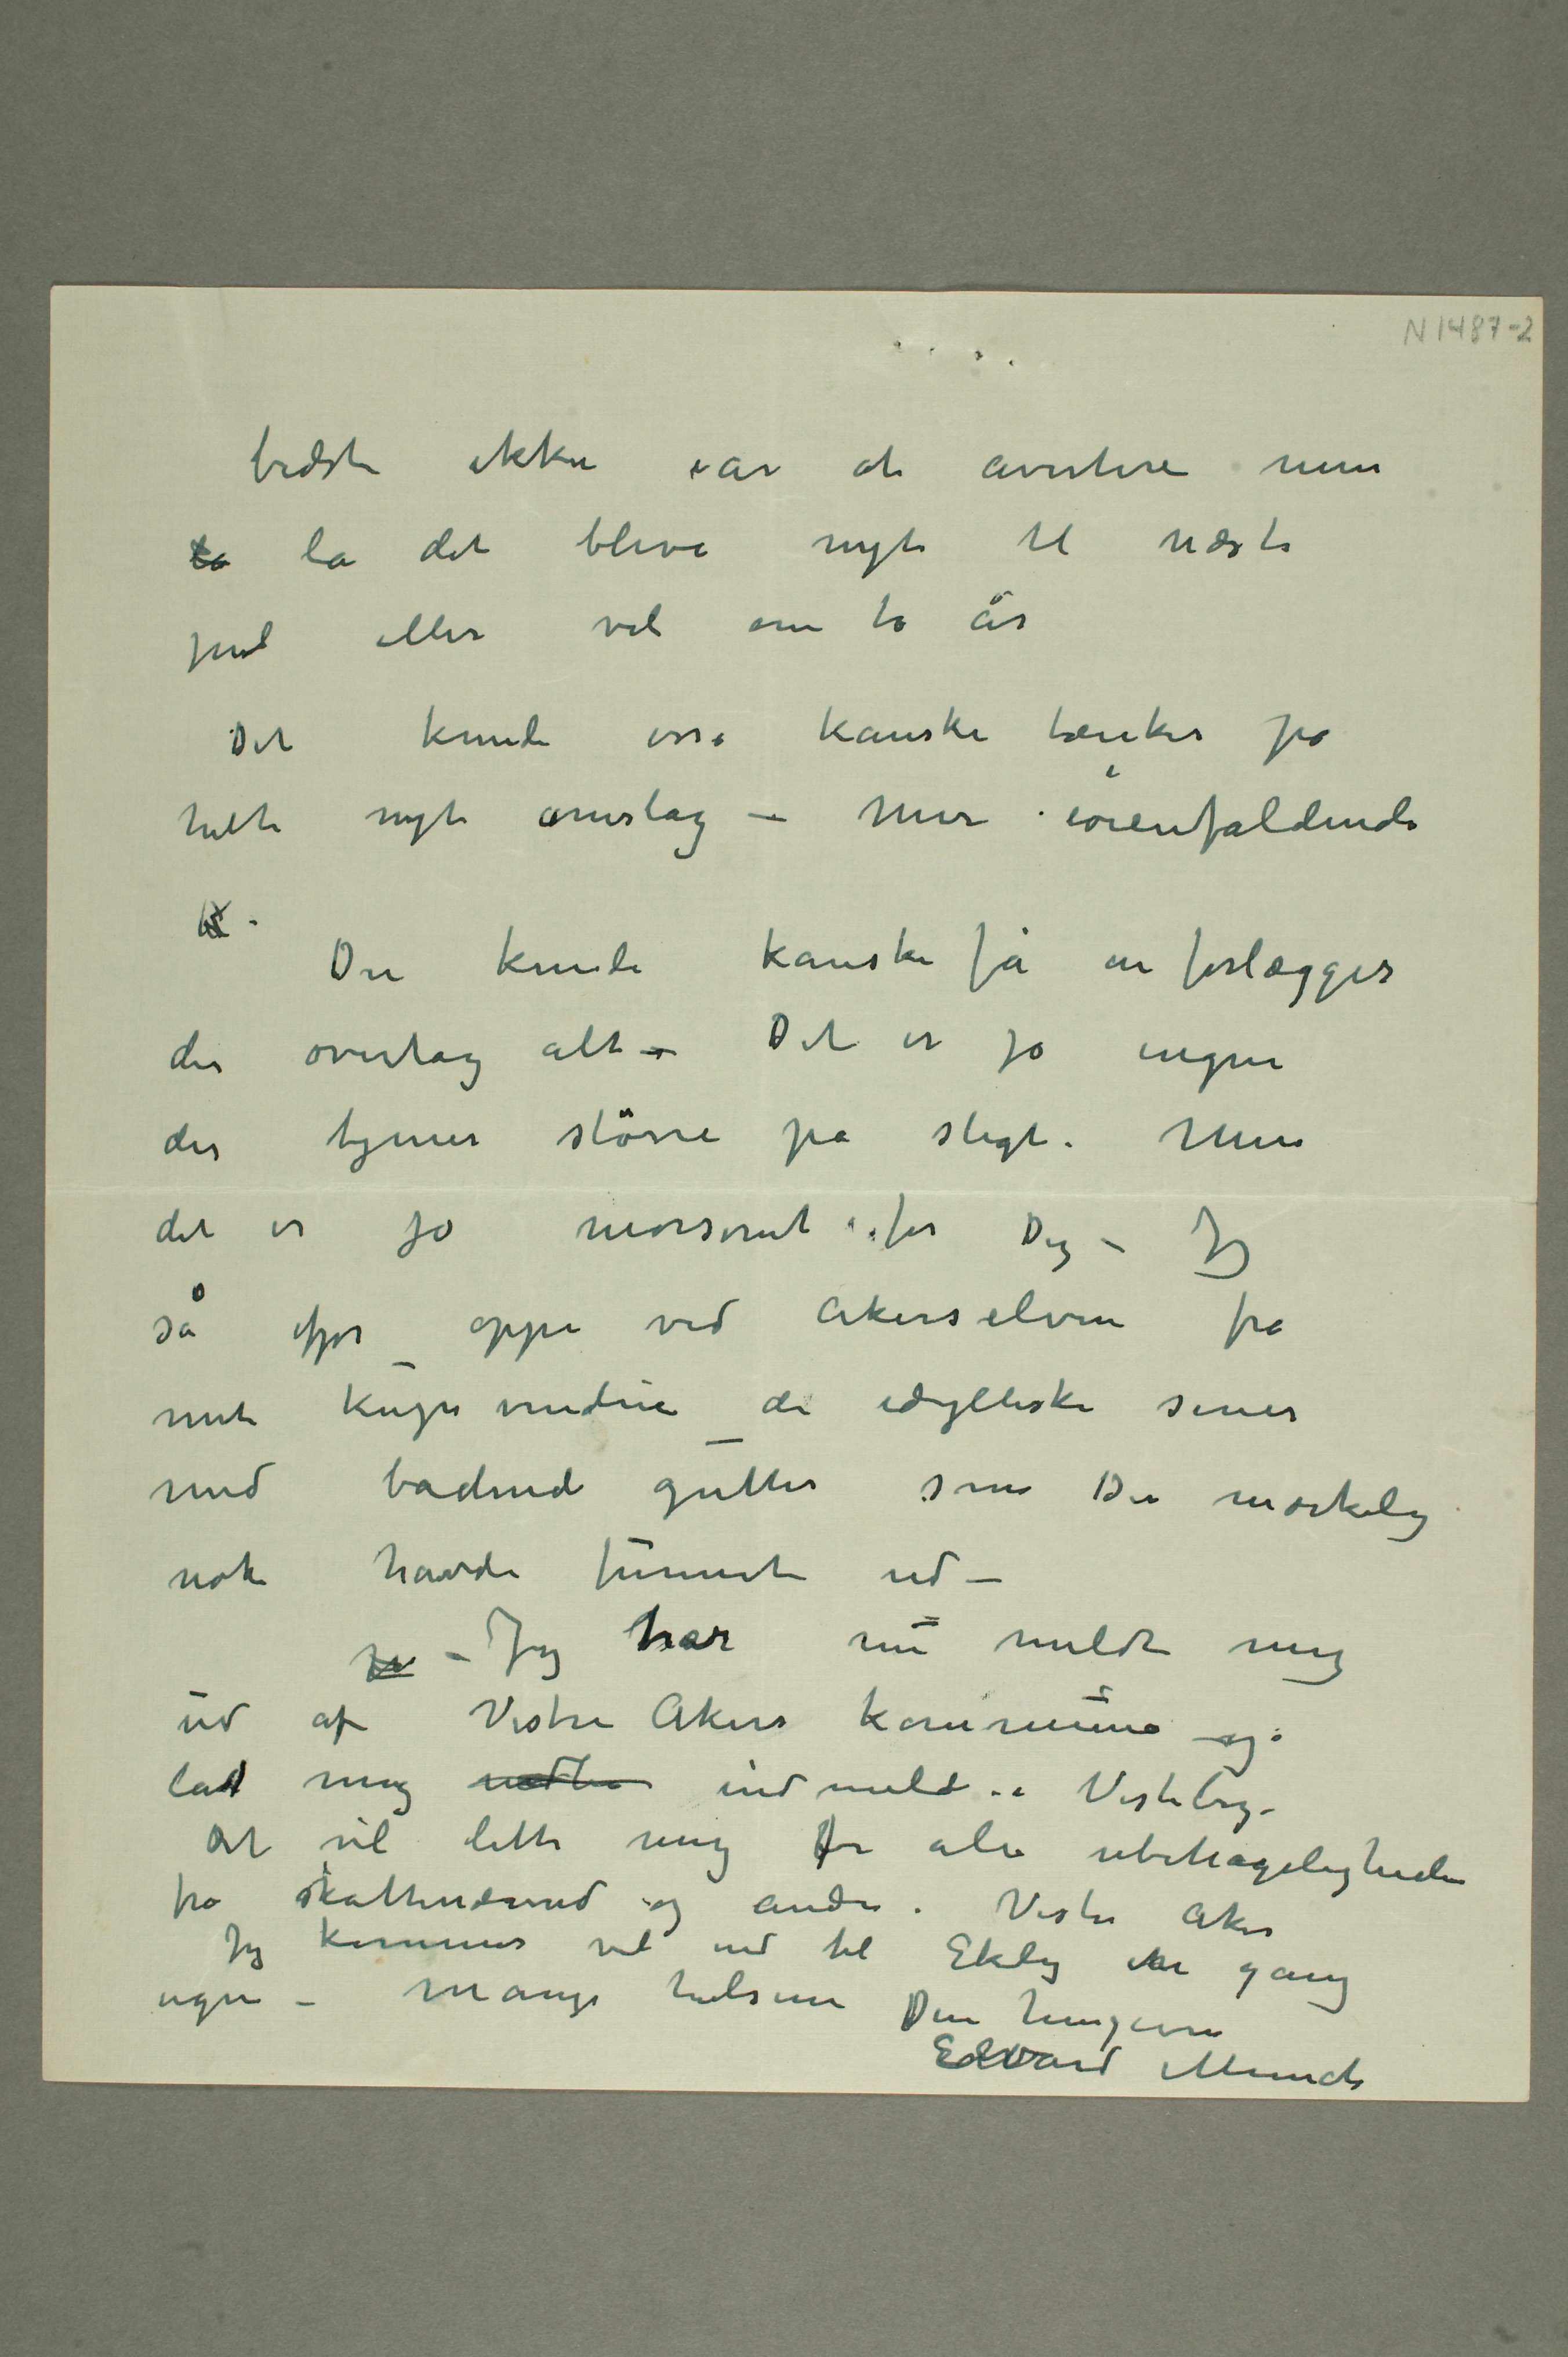 N 1487-2
bedst ikke iår at avertere men
la det blive nyt til næste
jul eller vel om to år
Det kunde også kanske tænkes på
helt nyt omslag – mer iøienfaldende
Du kunde kanske få en forlægger
der overtog alt – Det er jo ingen
der tjener større på sligt. Men
det er jo morsomt for Dig – Jeg
så ifjor oppe ved Akerselven fra
mit kupevindue de idylliske scener
med badende gutter som Du mærkelig
nok havde funnet ud –
– Jeg har nu meldt mig
ud af Vestre Akers kommune og
lad mig indmelde i Vestby.
Det vil lette mig for alle ubehageligheder
fra skattenævnd og andre i Vestre Aker
Jeg kommer vel ind til Ekely en gang
ugen – Mange hilsener Din hengivne
Edvard Munch